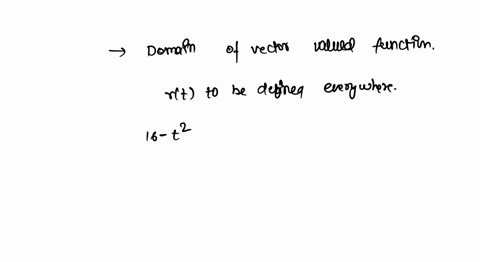 → Domain of vector valued function.
r(t) to be defined everywhere.
16-t²